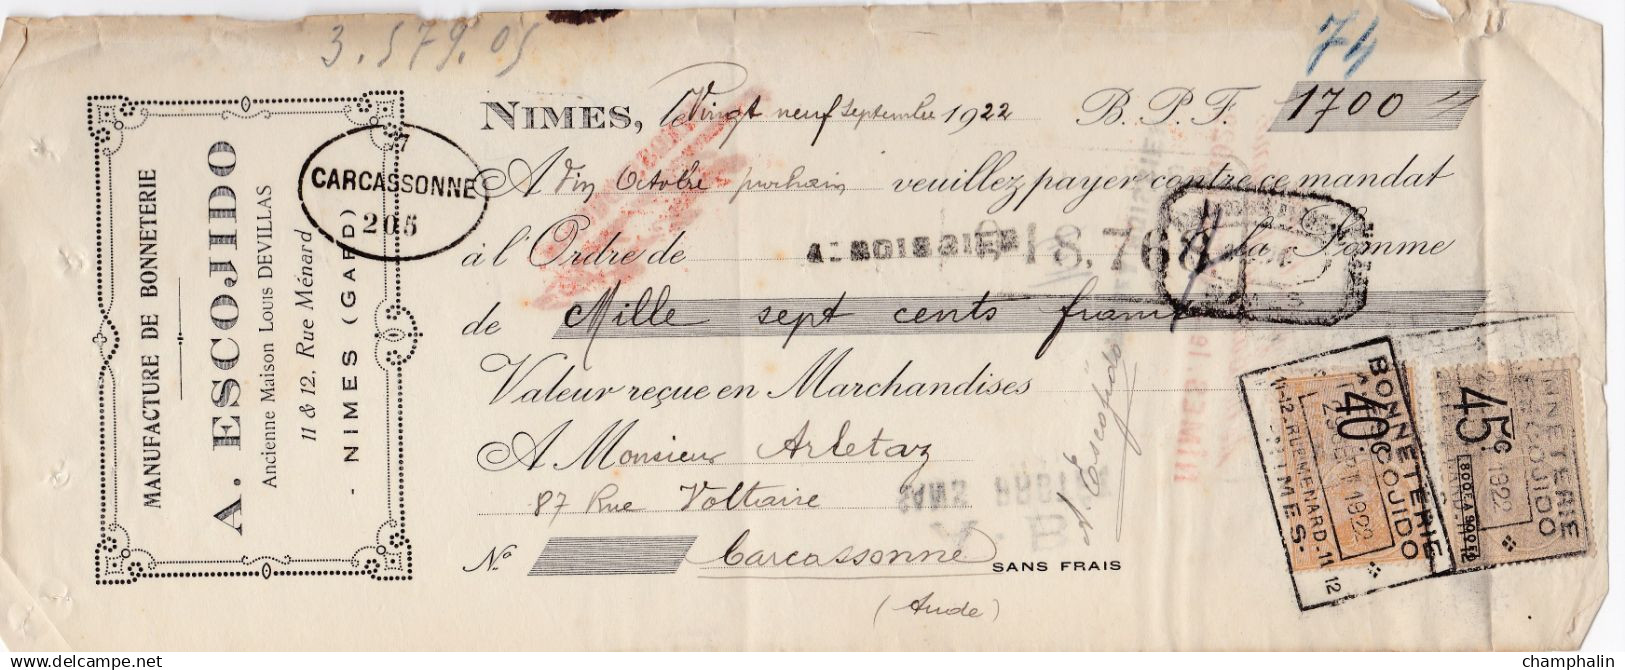 3.579.05
74
MANUFACTURE DE BONNETERIE
A. ESCOJIDO
Ancienne Maison LOUIS DEVILLAS
11 & 12, Rue Ménard
- NIMES (GARD) -
7
CARCASSONNE
205
NIMES, le Vingt neuf Septembre 1922 B.P.F. 1700
A Dix Octobre prochain veuillez payer contre ce mandat
à l'Ordre de A. BOISSIER 18,768 la Somme
de Mille sept cents francs
Valeur reçue en Marchandises
A Monsieur Arletaz
87 Rue Voltaire
No Carcassonne SANS FRAIS
(Aude)
A. Escojido
NIMES, le
BONNETERIE
A. ESCOJIDO
11-12, RUE MENARD, 11-12
NIMES.
40c
1922
45c
1922
BONNETERIE
ESCOJIDO
champhalin